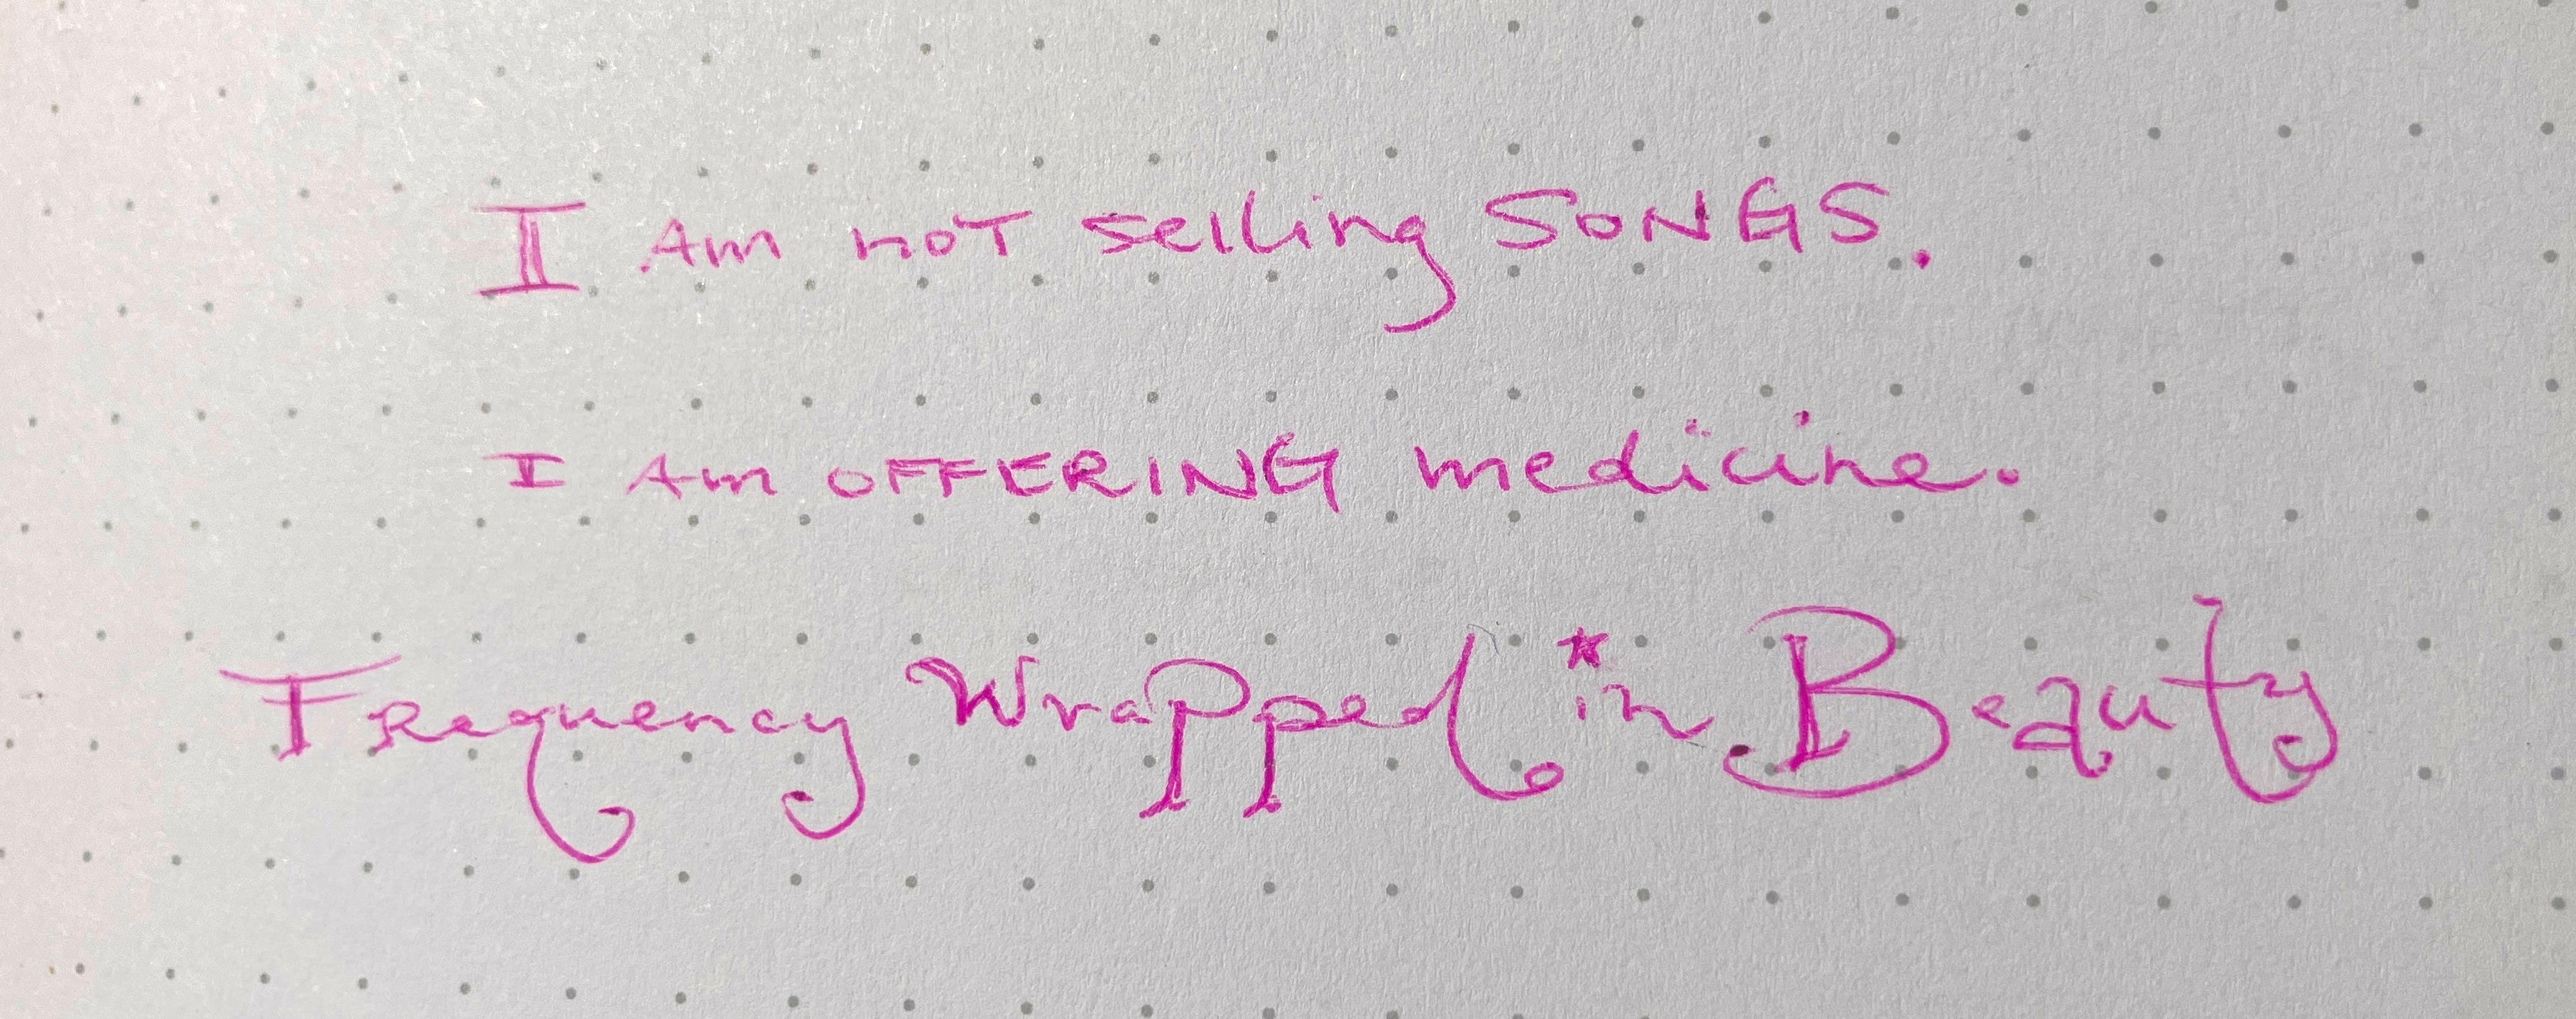 I Am noT selling SONGS.
I Am OFFERING medicine.
Frequency Wrapped in Beauty